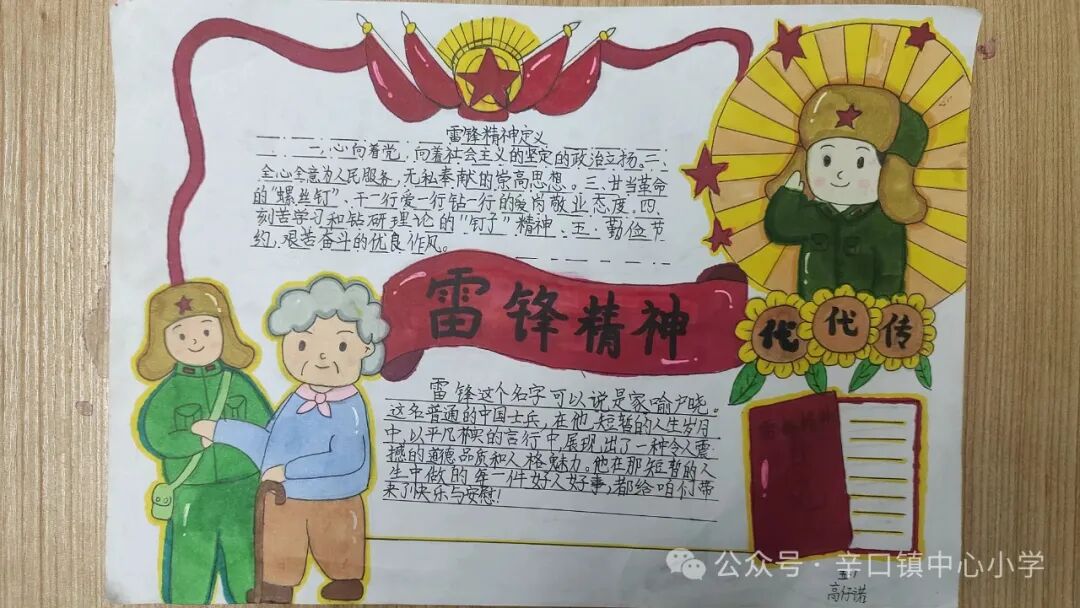 雷锋精神定义
一、心向着党，向着社会主义的坚定的政治立扬。二、
全心全意为人民服务，无私奉献的崇高思想。三、甘当革命
的"螺丝钉"、干一行爱一行钻一行的爱岗敬业态度。四、
刻苦学习和钻研理论的"钉子"精神、五·勤俭节
约，艰苦奋斗的优良作风。
雷锋精神
代代传
雷锋这个名字可以说是家喻户晓。
这名普通的中国士兵，在他短暂的人生岁月
中，以平凡朴实的言行中展现出了一种令人震
撼的道德品质和人格魅力。他在那短暂的人
生中做的每一件好人好事，都给咱们带
来了快乐与安慰！
高仔诺
公众号·辛口镇中心小学